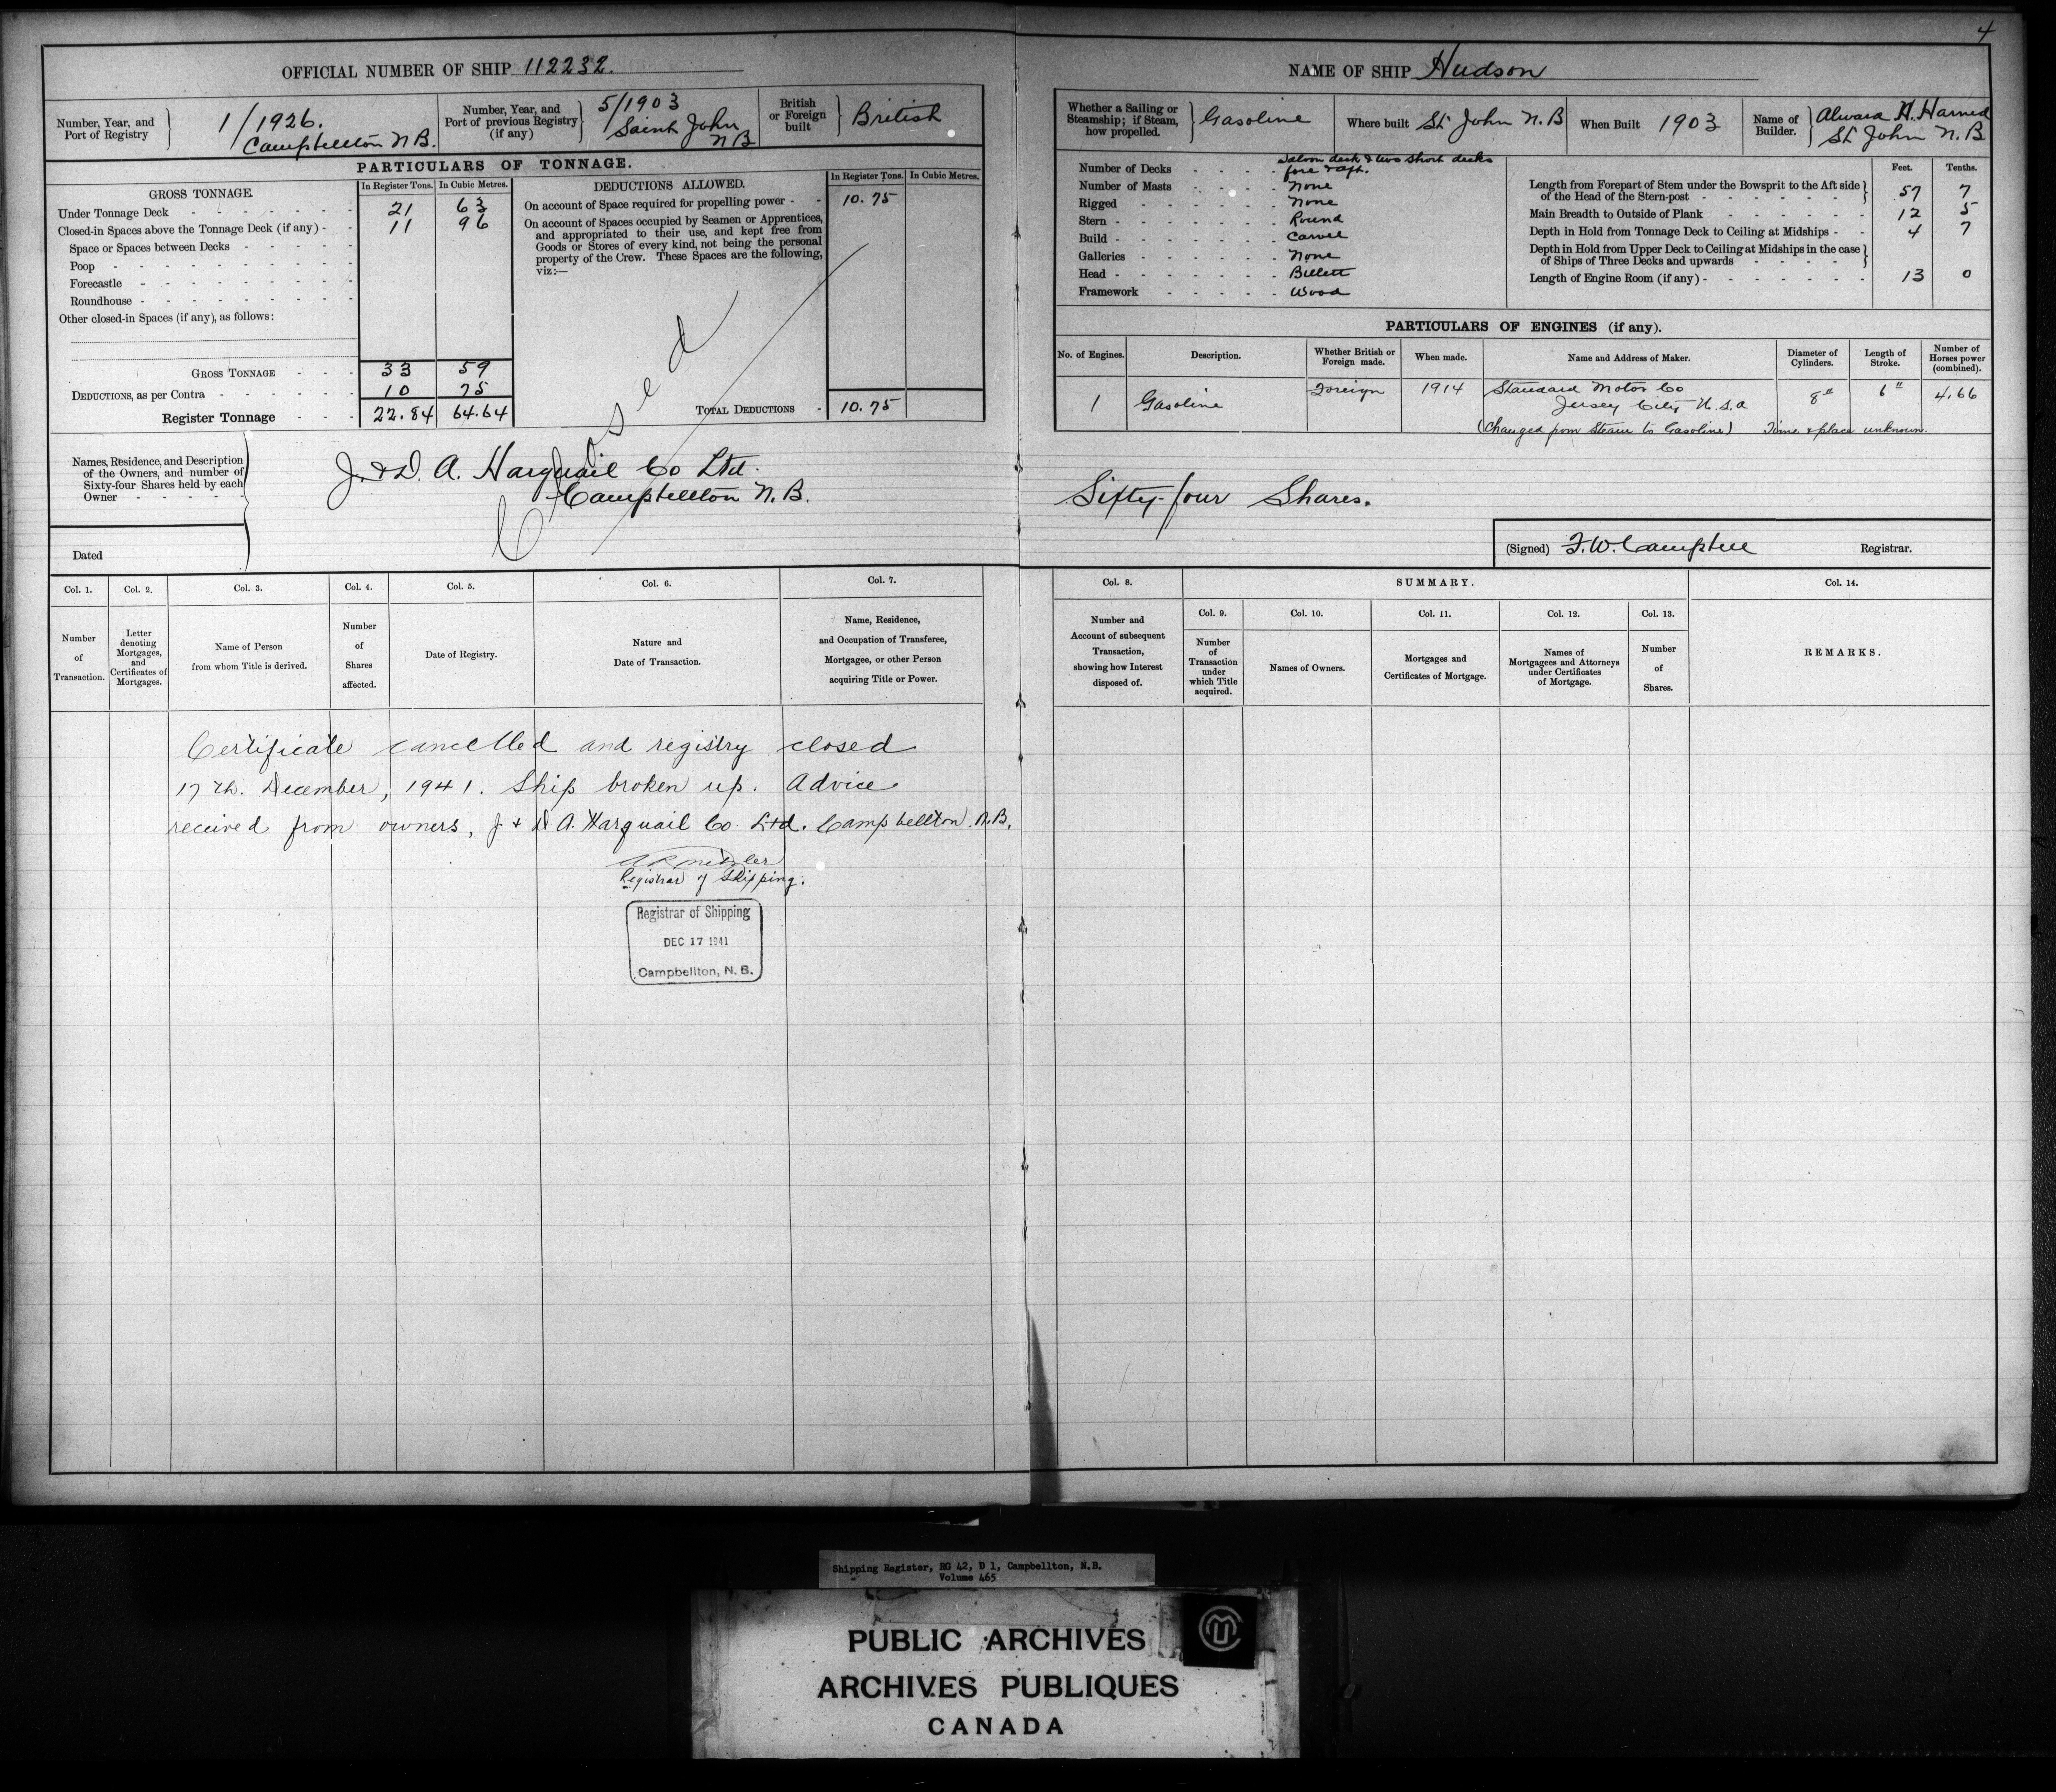 4
OFFICIAL NUMBER OF SHIP 112232.
Number, Year, and Port of Registry } 1/1926. Campbellton N.B.
Number, Year, and Port of previous Registry (if any) } 5/1903 Saint John N B
British or Foreign built } British
PARTICULARS OF TONNAGE.
GROSS TONNAGE. In Register Tons. In Cubic Metres.
Under Tonnage Deck 21 63
Closed-in Spaces above the Tonnage Deck (if any) 11 96
Space or Spaces between Decks
Poop
Forecastle
Roundhouse
Other closed-in Spaces (if any), as follows:
GROSS TONNAGE 33 59
DEDUCTIONS, as per Contra 10 75
Register Tonnage 22.84 64.64
DEDUCTIONS ALLOWED. In Register Tons. In Cubic Metres.
On account of Space required for propelling power 10.75
On account of Spaces occupied by Seamen or Apprentices,
and appropriated to their use, and kept free from
Goods or Stores of every kind, not being the personal
property of the Crew. These Spaces are the following,
viz:—
TOTAL DEDUCTIONS 10.75
Closed
Names, Residence, and Description
of the Owners, and number of
Sixty-four Shares held by each
Owner
J. & D. A. Harquail Co Ltd.
Campbellton N.B.
Dated
NAME OF SHIP Hudson
Whether a Sailing or Steamship; if Steam, how propelled. } Gasoline
Where built St John N.B
When Built 1903
Name of Builder. } H. Harned St John N.B
Number of Decks Saloon deck & two short decks fore & aft.
Number of Masts None
Rigged None
Stern Round
Build Carvel
Galleries None
Head Billett
Framework Wood
Feet. Tenths.
Length from Forepart of Stem under the Bowsprit to the Aft side of the Head of the Stern-post 57 7
Main Breadth to Outside of Plank 12 5
Depth in Hold from Tonnage Deck to Ceiling at Midships 4 7
Depth in Hold from Upper Deck to Ceiling at Midships in the case of Ships of Three Decks and upwards
Length of Engine Room (if any) 13 0
PARTICULARS OF ENGINES (if any).
No. of Engines. Description. Whether British or Foreign made. When made. Name and Address of Maker. Diameter of Cylinders. Length of Stroke. Number of Horses power (combined).
1 Gasoline Foreign 1914 Standard Motor Co Jersey City U.S.A 8" 6" 4.66
(Changed from Steam to Gasoline) Time & place unknown.
Sixty-four Shares.
(Signed) F.W. Campbell Registrar.
Col. 1. Col. 2. Col. 3. Col. 4. Col. 5. Col. 6. Col. 7.
Number of Transaction.
Letter denoting Mortgages, and Certificates of Mortgages.
Name of Person from whom Title is derived.
Number of Shares affected.
Date of Registry.
Nature and Date of Transaction.
Name, Residence, and Occupation of Transferee, Mortgagee, or other Person acquiring Title or Power.
Col. 8. SUMMARY. Col. 14.
Col. 9. Col. 10. Col. 11. Col. 12. Col. 13.
Number and Account of subsequent Transaction, showing how Interest disposed of.
Number of Transaction under which Title acquired.
Names of Owners.
Mortgages and Certificates of Mortgage.
Names of Mortgagees and Attorneys under Certificates of Mortgage.
Number of Shares.
REMARKS.
Certificate cancelled and registry closed
17th. December, 1941. Ship broken up. Advice
received from owners, J & D A. Harquail Co. Ltd. Campbellton. N.B.
Registrar of Shipping.
Registrar of Shipping
DEC 17 1941
Campbellton, N. B.
Shipping Register, RG 42, D 1, Campbellton, N.B.
Volume 465
PUBLIC ARCHIVES
ARCHIVES PUBLIQUES
CANADA